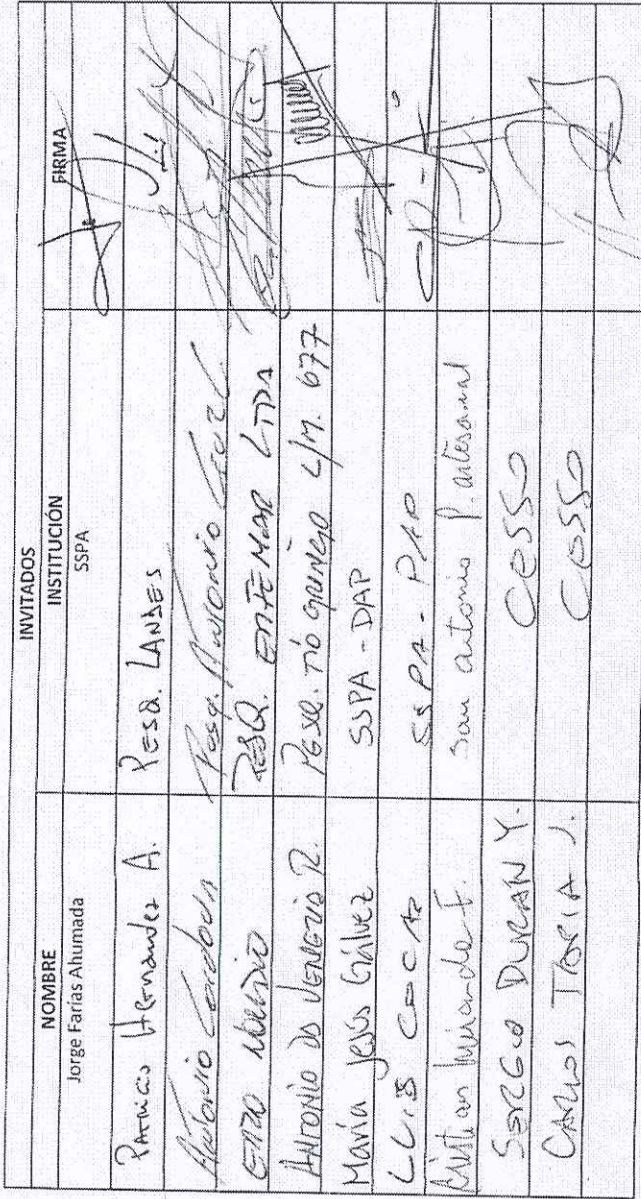 INVITADOS
NOMBRE INSTITUCIÓN FIRMA
Jorge Farías Ahumada SSPA
Patricio Hernandez A. PESQ. LANDES
Antonio Cordova Pesq. Antonio
ENZO PESQ. ENFEMAR LTDA
ANTONIO DA VENEZIA R. PESQ. TIO GRINGO L/M. 677
María Jesús Gálvez SSPA - DAP
LUIS COCAR SSPA - PAO
Cristian Miranda F. San Antonio P. artesanal
SERGIO DURAN Y. CESSO
CARLOS TAPIA J. CESSO